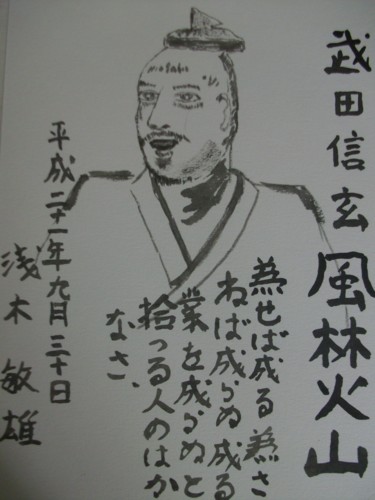 武田信玄
風林火山
為せば成る 為さ
ねば成らぬ成る
業を成らぬと
拾つる人のはか
なさ、
平成二十一年九月三十日
浅木敏雄